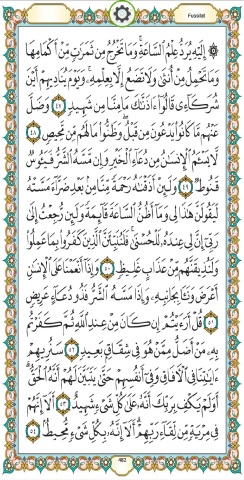 Fussilat
۞ إِلَيْهِ يُرَدُّ عِلْمُ السَّاعَةِ ۚ وَمَا تَخْرُجُ مِن ثَمَرَاتٍ مِّنْ أَكْمَامِهَا
وَمَا تَحْمِلُ مِنْ أُنثَىٰ وَلَا تَضَعُ إِلَّا بِعِلْمِهِ ۚ وَيَوْمَ يُنَادِيهِمْ أَيْنَ
شُرَكَائِي قَالُوا آذَنَّاكَ مَا مِنَّا مِن شَهِيدٍ ٤٧ وَضَلَّ
عَنْهُم مَّا كَانُوا يَدْعُونَ مِن قَبْلُ ۖ وَظَنُّوا مَا لَهُم مِّن مَّحِيصٍ ٤٨
لَّا يَسْأَمُ الْإِنسَانُ مِن دُعَاءِ الْخَيْرِ وَإِن مَّسَّهُ الشَّرُّ فَيَئُوسٌ
قَنُوطٌ ٤٩ وَلَئِنْ أَذَقْنَاهُ رَحْمَةً مِّنَّا مِن بَعْدِ ضَرَّاءَ مَسَّتْهُ
لَيَقُولَنَّ هَٰذَا لِي وَمَا أَظُنُّ السَّاعَةَ قَائِمَةً وَلَئِن رُّجِعْتُ إِلَىٰ
رَبِّي إِنَّ لِي عِندَهُ لَلْحُسْنَىٰ ۚ فَلَنُنَبِّئَنَّ الَّذِينَ كَفَرُوا بِمَا عَمِلُوا
وَلَنُذِيقَنَّهُم مِّنْ عَذَابٍ غَلِيظٍ ٥٠ وَإِذَا أَنْعَمْنَا عَلَى الْإِنسَانِ
أَعْرَضَ وَنَأَىٰ بِجَانِبِهِ وَإِذَا مَسَّهُ الشَّرُّ فَذُو دُعَاءٍ عَرِيضٍ
٥١ قُلْ أَرَأَيْتُمْ إِن كَانَ مِنْ عِندِ اللَّهِ ثُمَّ كَفَرْتُم
بِهِ مَنْ أَضَلُّ مِمَّنْ هُوَ فِي شِقَاقٍ بَعِيدٍ ٥٢ سَنُرِيهِمْ
آيَاتِنَا فِي الْآفَاقِ وَفِي أَنفُسِهِمْ حَتَّىٰ يَتَبَيَّنَ لَهُمْ أَنَّهُ الْحَقُّ ۗ
أَوَلَمْ يَكْفِ بِرَبِّكَ أَنَّهُ عَلَىٰ كُلِّ شَيْءٍ شَهِيدٌ ٥٣ أَلَا إِنَّهُمْ
فِي مِرْيَةٍ مِّن لِّقَاءِ رَبِّهِمْ ۗ أَلَا إِنَّهُ بِكُلِّ شَيْءٍ مُّحِيطٌ ٥٤
482